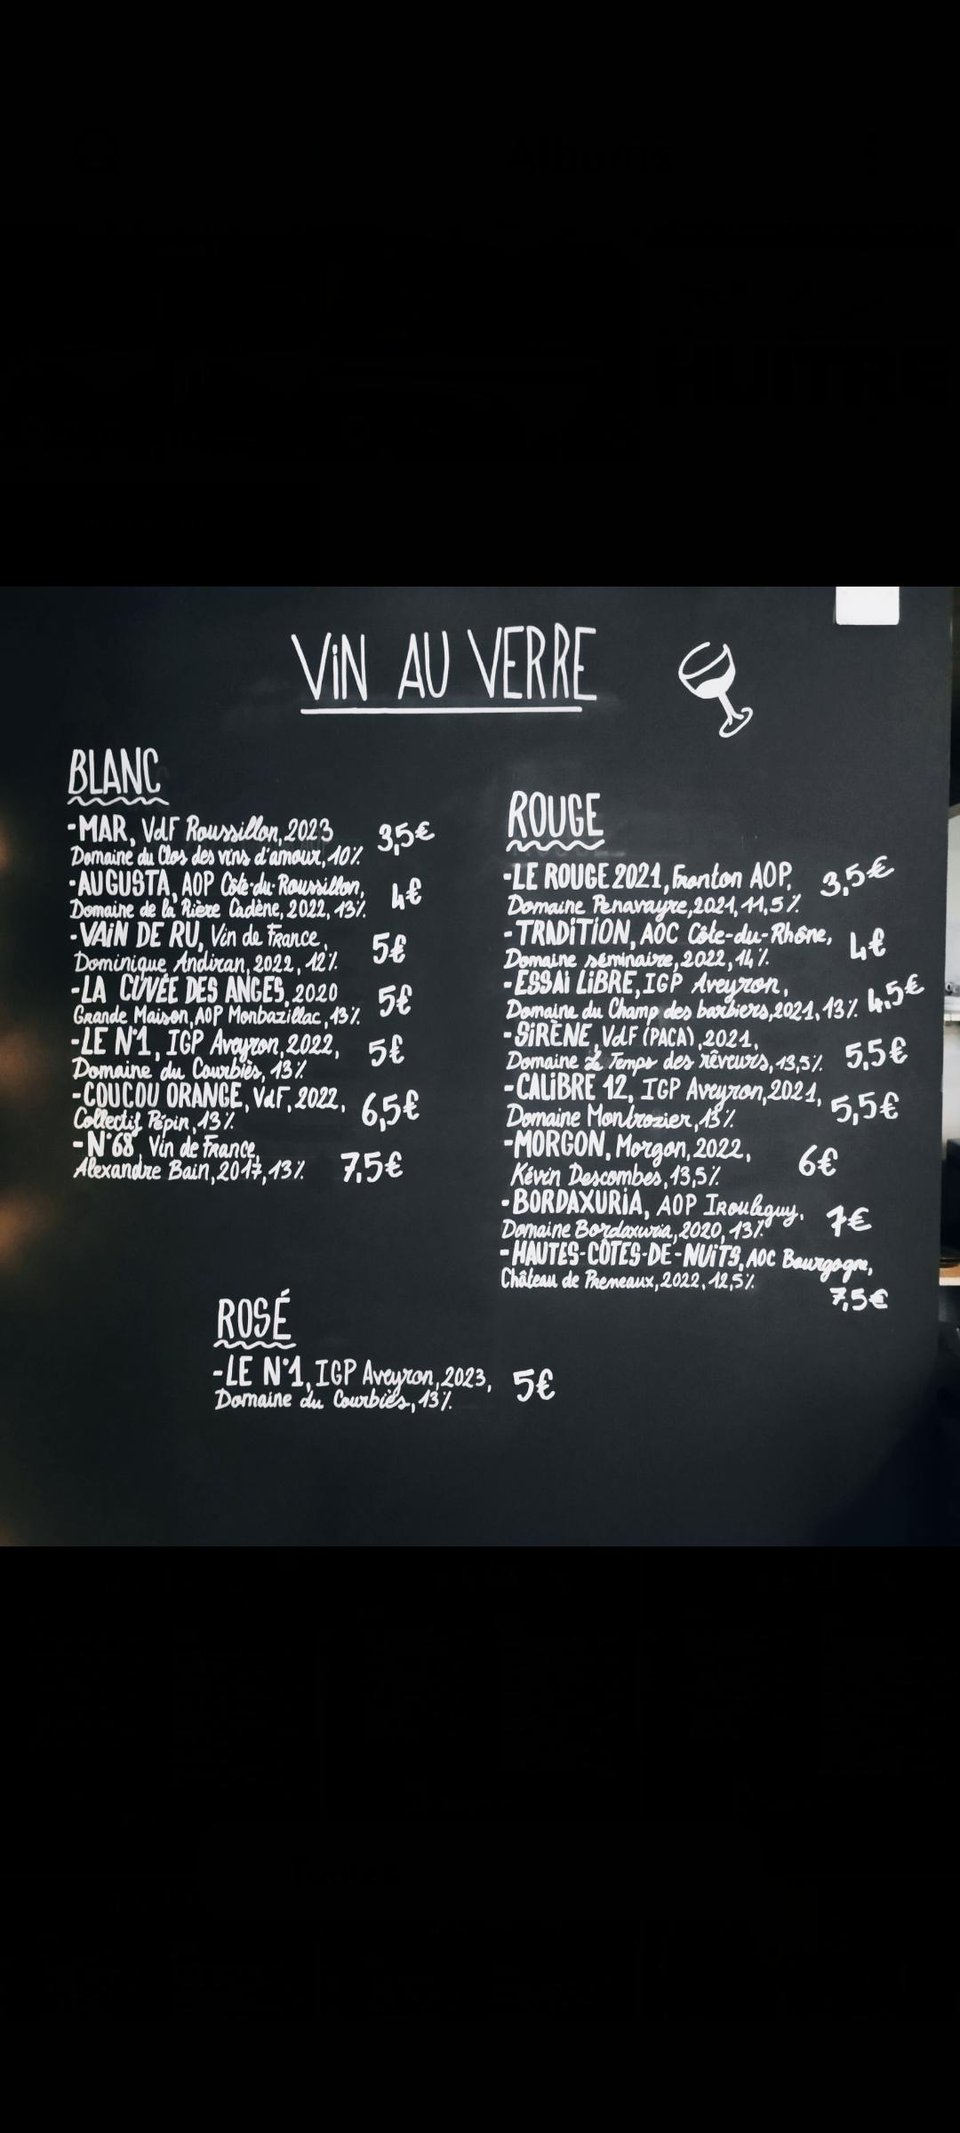 VIN AU VERRE
BLANC
-MAR, VdF Roussillon, 2023 3,5€
Domaine du Clos des vins d'amour, 10%
-AUGUSTA, AOP Côte-du-Roussillon, 4€
Domaine de la Rière Cadène, 2022, 13%
-VAIN DE RU, Vin de France, 5€
Dominique Andiran, 2022, 12%
-LA CUVÉE DES ANGES, 2020 5€
Grande Maison, AOP Monbazillac, 13%
-LE N°1, IGP Aveyron, 2022, 5€
Domaine du Courbiès, 13%
-COUCOU ORANGE, VdF, 2022, 6,5€
Collectif Pépin, 13%
-N°68, Vin de France, 7,5€
Alexandre Bain, 2017, 13%
ROUGE
-LE ROUGE 2021, Fronton AOP, 3,5€
Domaine Penavayre, 2021, 11,5%
-TRADITION, AOC Côte-du-Rhône, 4€
Domaine séminaire, 2022, 14%
-ESSAI LIBRE, IGP Aveyron, 4,5€
Domaine du Champ des barbiers, 2021, 13%
-SIRÈNE, VdF (PACA), 2021, 5,5€
Domaine Le Temps des rêveurs, 13,5%
-CALIBRE 12, IGP Aveyron, 2021, 5,5€
Domaine Montrozier, 13%
-MORGON, Morgon, 2022, 6€
Kévin Descombes, 13,5%
-BORDAXURIA, AOP Irouleguy, 7€
Domaine Bordaxuria, 2020, 13%
-HAUTES-CÔTES-DE-NUITS, AOC Bourgogne,
Château de Premeaux, 2022, 12,5% 7,5€
ROSÉ
-LE N°1, IGP Aveyron, 2023, 5€
Domaine du Courbiès, 13%